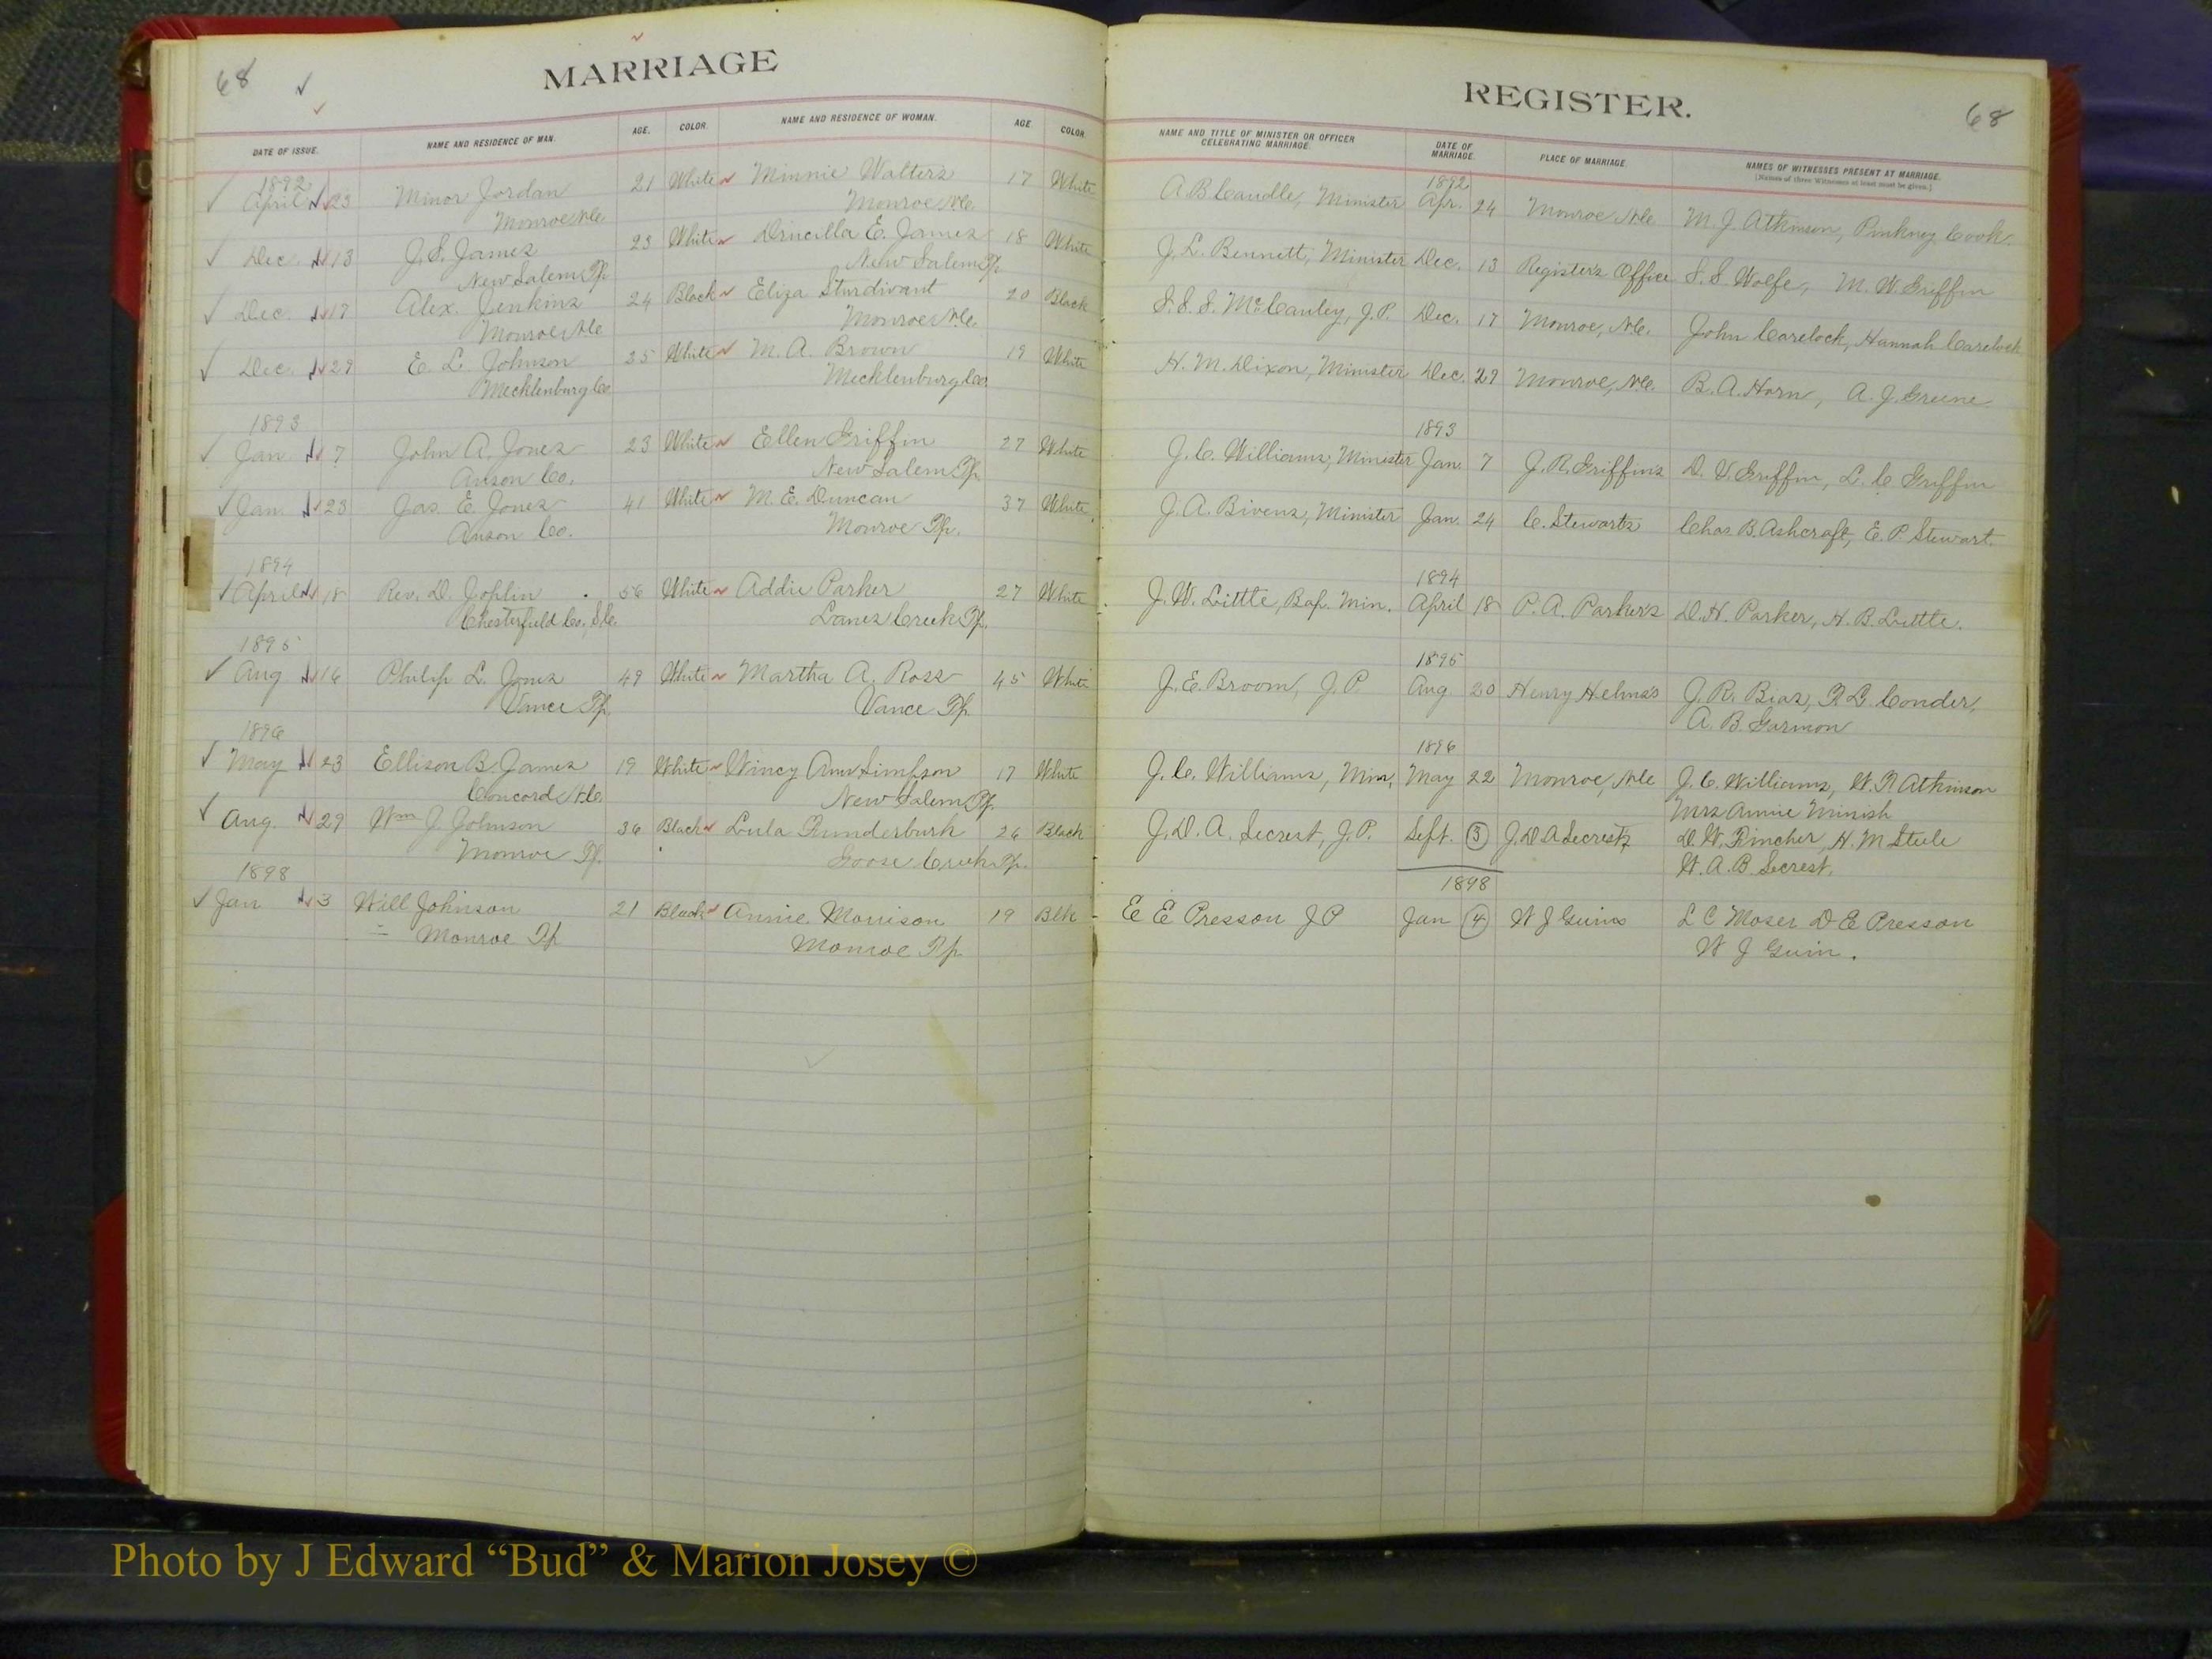 68
MARRIAGE
DATE OF ISSUE. NAME AND RESIDENCE OF MAN. AGE. COLOR. NAME AND RESIDENCE OF WOMAN. AGE COLOR.
1892
April 23 Minor Jordan 21 White Minnie Walters 17 White
Monroe N.C. Monroe N.C.
Dec. 13 J. S. James 23 White Drucilla E. James 18 White
New Salem Tp. New Salem Tp.
Dec. 17 Alex. Jenkins 24 Black Eliza Sturdivant 20 Black
Monroe N.C. Monroe N.C.
Dec. 29 E. L. Johnson 35 White M. A. Brown 19 White
Mecklenburg Co. Mecklenburg Co.
1893
Jan. 7 John A. Jones 23 White Ellen Griffin 27 White
Anson Co. New Salem Tp.
Jan. 23 Jas. E. Jones 41 White M. E. Duncan 37 White
Anson Co. Monroe Tp.
1894
April 18 Rev. D. Joplin 56 White Addie Parker 27 White
Chesterfield Co., S.C. Lanes Creek Tp.
1895
Aug 16 Philip L. Jones 49 White Martha A. Ross 45 White
Vance Tp. Vance Tp.
1896
May 23 Ellison B. James 19 White Wincy Ann Simpson 17 White
Concord N.C. New Salem Tp.
Aug. 29 Wm J. Johnson 36 Black Lula Funderburk 26 Black
Monroe Tp. Goose Creek Tp.
1898
Jan 3 Will Johnson 21 Black Annie Morrison 19 Blk
Monroe Tp Monroe Tp
REGISTER.
68
NAME AND TITLE OF MINISTER OR OFFICER CELEBRATING MARRIAGE. DATE OF MARRIAGE. PLACE OF MARRIAGE NAMES OF WITNESSES PRESENT AT MARRIAGE.
[Names of three Witnesses at least must be given.]
1892
A. B. Caudle, Minister Apr. 24 Monroe N.C. M. J. Atkinson, Pinkney Cook.
J. L. Bennett, Minister Dec. 13 Register's Office S. S. Wolfe, M. W. Griffin
S. S. S. McCauley, J.P. Dec. 17 Monroe, N.C. John Carelock, Hannah Carelock
H. M. Dixon, Minister Dec. 29 Monroe, N.C. B. A. Horn, A. J. Greene
1893
J. C. Williams, Minister Jan. 7 J. R. Griffin's D. V. Griffin, L. C. Griffin
J. A. Bivens, Minister Jan. 24 C. Stewarts Chas. B. Ashcraft, E. P. Stewart.
1894
J. W. Little, Bap. Min. April 18 P. A. Parker's D. H. Parker, H. B. Little.
1895
J. E. Broom, J.P. Aug. 20 Henry Helms's J. R. Bias, R. L. Conder,
A. B. Garmon
1896
J. C. Williams, Min, May 22 Monroe, N.C. J. C. Williams, W. R. Atkinson
Mrs Annie Minish
J. D. A. Secrest, J.P. Sept. 3 J. D A Secrest's D. W. Pincher, H. M Steele
W. A. B. Secrest.
1898
E E Presson J P Jan 4 W J Guins L C Moser D E Presson
W J Guin.
Photo by J Edward “Bud” & Marion Josey ©